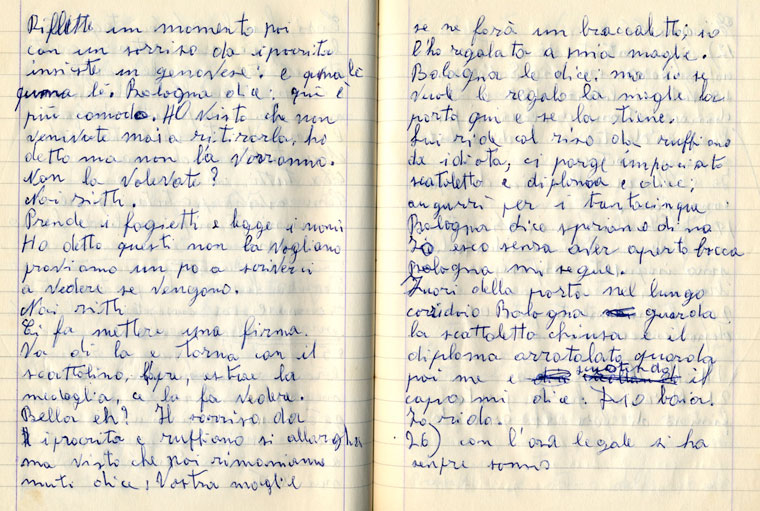 Riflette un momento poi
con un sorriso da ipocrita
insiste in genovese: e quma lè
quma lè. Bologna dice: qui è
più comodo. HO visto che non
venivate mai a ritirarla, ho
detto ma non l'a vorranno.
Non la volevate?
Noi sitti.
Prende i fogietti e legge i nomi
Ho detto questi non la vogliano
proviamo un po a scriverci
a vedere se vengono.
Noi sitti
Ci fa mettere una firma.
Va di la e torna con il
scattolino, l'apre, estrae la
medaglia, ce la fa vedere.
Bella eh? Il sorriso da
ipocrita e ruffiano si allargha
ma visto che poi rimaniamo
muti dice; Vostra moglie
se ne farà un braccialetto; io
l'ho regalata a mia moglie.
Bologna le dice; ma io se
vuole le regalo la moglie la
porto qui e se la tiene.
Lui ride col riso da ruffiano
da idiota, ci porge impaciato
scatoletto e diploma e dice;
augurri per i trentacinque
Bologna dice speriamo di na
Io esco senza aver aperto bocca
Bologna mi segue.
Fuori della porta nel lungo
corridoio Bologna guarda
la scattoletta chiusa e il
diploma arrotolato guarda
poi me e scuotendo il
capo mi dice: Dio boia.
Io rido.
26) con l'ora legale si ha
senpre sonno